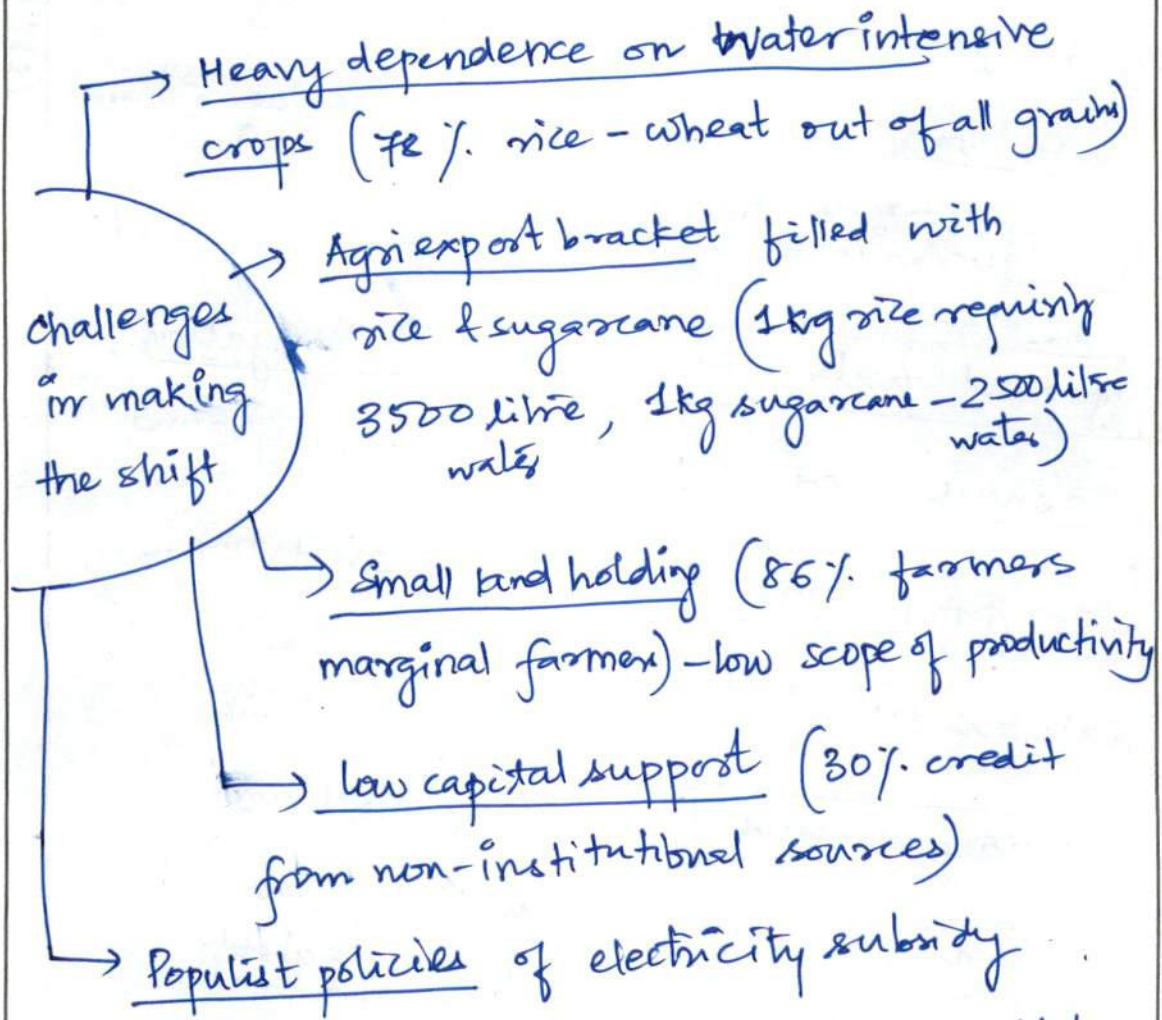 Heavy dependence on Water intensive
crops (78 %. rice - wheat out of all grains)
Agri export bracket filled with
rice & sugarcane (1kg rice requiring
3500 litre, 1kg sugarcane - 2500 litre
water water)
challenges
in making
the shift
Small land holding (86%. farmers
marginal farmers) - low scope of productivity
low capital support (30%. credit
from non-institutional sources)
Populist policies of electricity subsidy